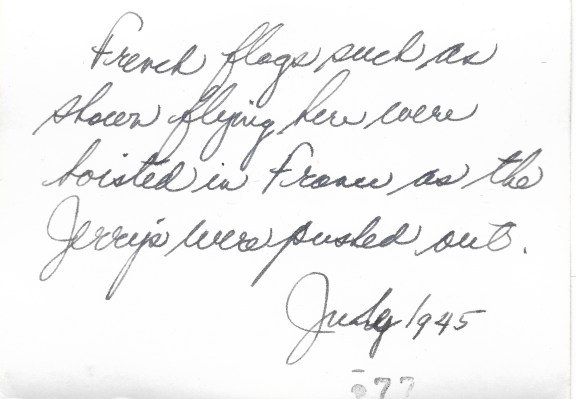 French flags such as
shown flying here were
hoisted in France as the
Jerrys were pushed out.
July 1945
77